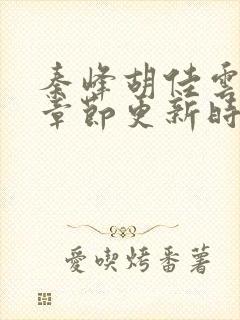 秦峰胡佳雲
章節更新時
愛喫烤番薯